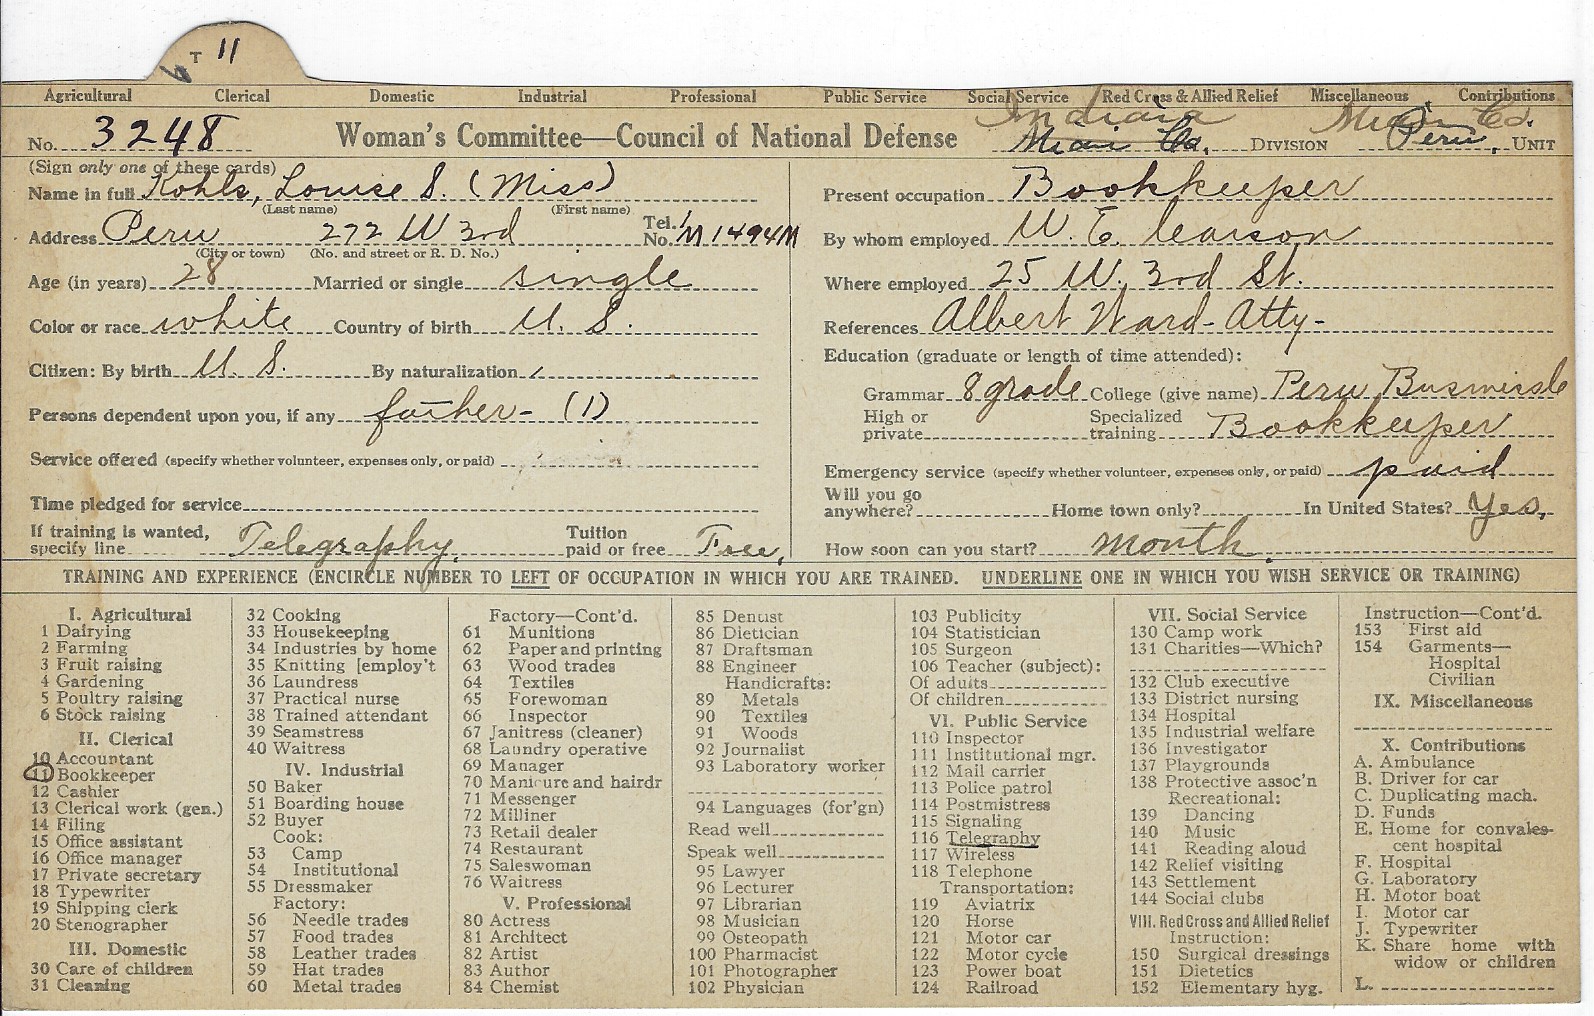 T 11
Agricultural Clerical Domestic Industrial Professional Public Service Social Service Red Cross & Allied Relief Miscellaneous Contributions
Indiana Miami Co.
No. 3248 Woman's Committee—Council of National Defense Miami Co. DIVISION Peru, UNIT
(Sign only one of these cards)
Name in full Kohls, Louise S. (Miss)
(Last name) (First name)
Address Peru 272 W 3rd Tel. No. M1494M
(City or town) (No. and street or R. D. No.)
Age (in years) 28 Married or single single
Color or race white Country of birth U. S.
Citizen: By birth U. S. By naturalization
Persons dependent upon you, if any father - (1)
Service offered (specify whether volunteer, expenses only, or paid)
Time pledged for service
If training is wanted, specify line Telegraphy. Tuition paid or free Free.
Present occupation Bookkeeper
By whom employed W. E.
Where employed 25 W. 3rd St.
References Albert Ward - Atty -
Education (graduate or length of time attended):
Grammar 8 grade College (give name) Peru
High or private Specialized training Bookkeeper
Emergency service (specify whether volunteer, expenses only, or paid) paid
Will you go anywhere? Home town only? In United States? Yes.
How soon can you start? month.
TRAINING AND EXPERIENCE (ENCIRCLE NUMBER TO LEFT OF OCCUPATION IN WHICH YOU ARE TRAINED. UNDERLINE ONE IN WHICH YOU WISH SERVICE OR TRAINING)
I. Agricultural
1 Dairying
2 Farming
3 Fruit raising
4 Gardening
5 Poultry raising
6 Stock raising
II. Clerical
10 Accountant
11 Bookkeeper
12 Cashier
13 Clerical work (gen.)
14 Filing
15 Office assistant
16 Office manager
17 Private secretary
18 Typewriter
19 Shipping clerk
20 Stenographer
III. Domestic
30 Care of children
31 Cleaning
32 Cooking
33 Housekeeping
34 Industries by home
35 Knitting [employ't
36 Laundress
37 Practical nurse
38 Trained attendant
39 Seamstress
40 Waitress
IV. Industrial
50 Baker
51 Boarding house
52 Buyer
Cook:
53 Camp
54 Institutional
55 Dressmaker
Factory:
56 Needle trades
57 Food trades
58 Leather trades
59 Hat trades
60 Metal trades
Factory—Cont'd.
61 Munitions
62 Paper and printing
63 Wood trades
64 Textiles
65 Forewoman
66 Inspector
67 Janitress (cleaner)
68 Laundry operative
69 Manager
70 Manicure and hairdr
71 Messenger
72 Milliner
73 Retail dealer
74 Restaurant
75 Saleswoman
76 Waitress
V. Professional
80 Actress
81 Architect
82 Artist
83 Author
84 Chemist
85 Dentist
86 Dietician
87 Draftsman
88 Engineer
Handicrafts:
89 Metals
90 Textiles
91 Woods
92 Journalist
93 Laboratory worker
94 Languages (for'gn)
Read well
Speak well
95 Lawyer
96 Lecturer
97 Librarian
98 Musician
99 Osteopath
100 Pharmacist
101 Photographer
102 Physician
103 Publicity
104 Statistician
105 Surgeon
106 Teacher (subject):
Of adults
Of children
VI. Public Service
110 Inspector
111 Institutional mgr.
112 Mail carrier
113 Police patrol
114 Postmistress
115 Signaling
116 Telegraphy
117 Wireless
118 Telephone
Transportation:
119 Aviatrix
120 Horse
121 Motor car
122 Motor cycle
123 Power boat
124 Railroad
VII. Social Service
130 Camp work
131 Charities—Which?
132 Club executive
133 District nursing
134 Hospital
135 Industrial welfare
136 Investigator
137 Playgrounds
138 Protective assoc'n
Recreational:
139 Dancing
140 Music
141 Reading aloud
142 Relief visiting
143 Settlement
144 Social clubs
VIII. Red Cross and Allied Relief
Instruction:
150 Surgical dressings
151 Dietetics
152 Elementary hyg.
Instruction—Cont'd.
153 First aid
154 Garments—
Hospital
Civilian
IX. Miscellaneous
X. Contributions
A. Ambulance
B. Driver for car
C. Duplicating mach.
D. Funds
E. Home for convales-
cent hospital
F. Hospital
G. Laboratory
H. Motor boat
I. Motor car
J. Typewriter
K. Share home with
widow or children
L.